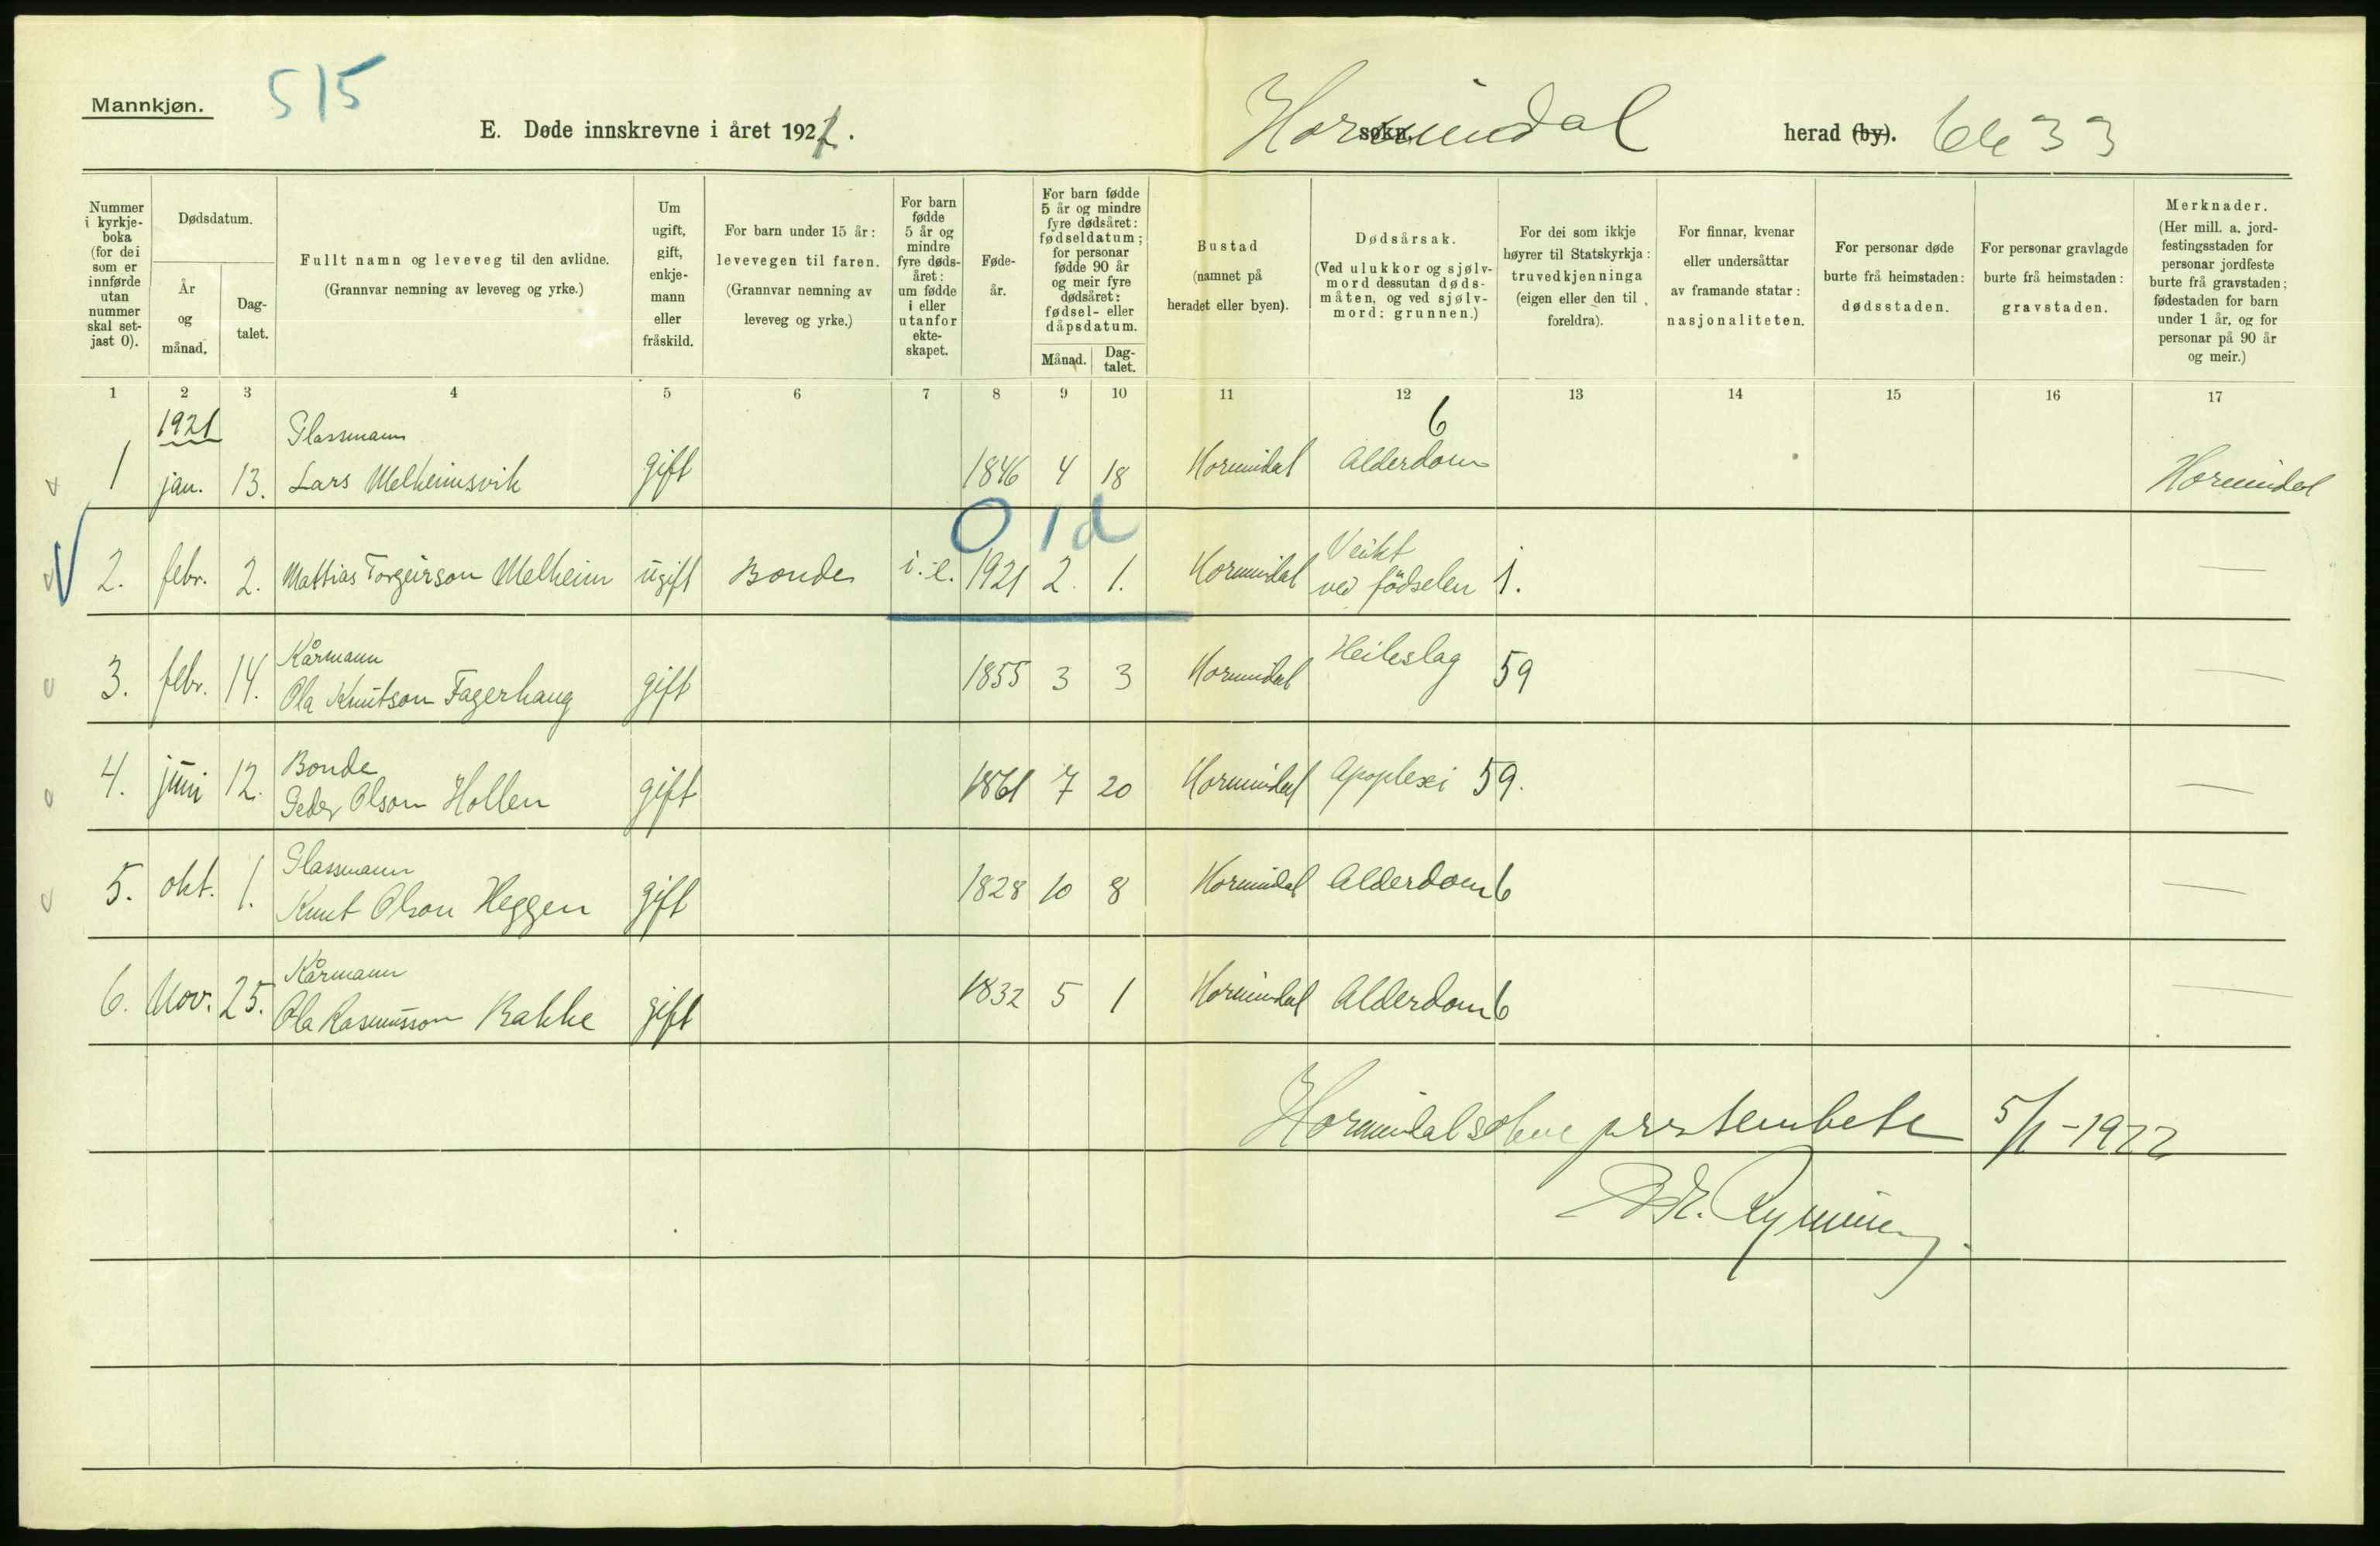 Mannkjøn.
515
E. Døde innskrevne i året 1921.
Hornindal
søkn,
herad (by).
6633
Nummer
i kyrkje-
boka
(for dei
som er
innførde
utan
nummer
skal set-
jast 0).
Dødsdatum.
År
og
månad.
Dag-
talet.
Fullt namn og leveveg til den avlidne.
(Grannvar nemning av leveveg og yrke.)
Um
ugift,
gift,
enkje-
mann
eller
fråskild.
For barn under 15 år:
levevegen til faren.
(Grannvar nemning av
leveveg og yrke.)
For barn
fødde
5 år og
mindre
fyre døds-
året:
um fødde
i eller
utanfor
ekte-
skapet.
Føde-
år.
For barn fødde
5 år og mindre
fyre dødsåret:
fødseldatum;
for personar
fødde 90 år
og meir fyre
dødsåret:
fødsel- eller
dåpsdatum.
Månad.
Dag-
talet.
Bustad
(namnet på
heradet eller byen).
Dødsårsak.
(Ved ulukkor og sjølv-
mord dessutan døds-
måten, og ved sjølv-
mord: grunnen.)
For dei som ikkje
høyrer til Statskyrkja:
truvedkjenninga
(eigen eller den til
foreldra).
For finnar, kvenar
eller undersåttar
av framande statar:
nasjonaliteten.
For personar døde
burte frå heimstaden:
dødsstaden.
For personar gravlagde
burte frå heimstaden:
gravstaden.
Merknader.
(Her mill. a. jord-
festingsstaden for
personar jordfeste
burte frå gravstaden;
fødestaden for barn
under 1 år, og for
personar på 90 år
og meir.)
1 2 3 4 5 6 7 8 9 10 11 12 13 14 15 16 17
1921
Plassmann 6
1 jan. 13. Lars Melheimsvik gift 1846 4 18 Hornindal Alderdom Hornindal
0 1 d
Veikt
2. febr. 2. Mattias Torgeirson Melheim ugift Bonde i.e. 1921 2. 1. Hornindal ved fødselen 1. —
Kårmann
3. febr. 14. Ola Knutson Fagerhaug gift 1855 3 3 Hornindal Heileslag 59 —
Bonde
4. juni 12. Peder Olson Hollen gift 1861 7 20 Hornindal Apoplexi 59. —
Plassmann
5. okt. 1. Knut Olson Heggen gift 1828 10 8 Hornindal Alderdom 6 —
Kårmann
6. Nov. 25. Ola Rasmusson Bakke gift 1832 5 1 Hornindal Alderdom 6 —
Hornindal sokneprestembete 5/1-1922